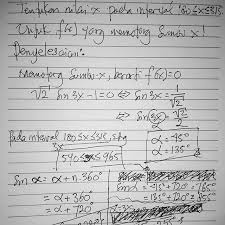 Tentukan nilai x pada interval 180≤x≤315
Untuk f(x) yang memotong sumbu x!
Penyelesaian:
Memotong sumbu-x, berarti f(x)=0
√2 sin 3x-1=0 ⇔ sin 3x = 1/√2
⇔ sin 3x = 1/√2
α = 45°
α = 135°
Pada interval 180≤x≤315, shg
3x
540≤α≤945
Sin α = α + n.360°
= α + 360°
= α + 720°
= 45° + 720° = 765°
= 135° + 720° = 855°